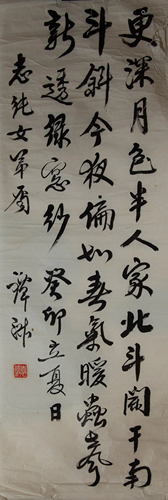 更深月色半人家北斗闌干南
斗斜今夜偏知春氣暖蟲聲
新透綠窗紗 癸卯立夏日
志純女弟屬